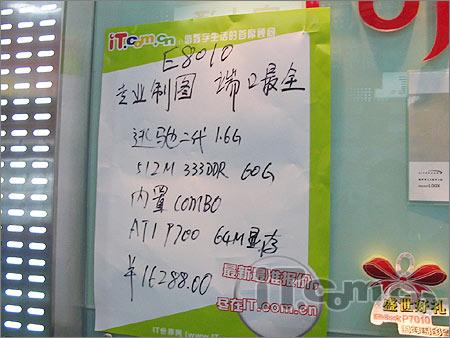 iT.com.cn 数字生活的首席顾问
E8010
专业制图 端口最全
迅驰二代 1.6G
512M 333DDR 60G
内置 COMBO
ATI 9700 64M显存
¥16288.00
最新最准报价
尽在iT.com.cn
IT世界网
iT.com.cn
盛世好礼
P7010